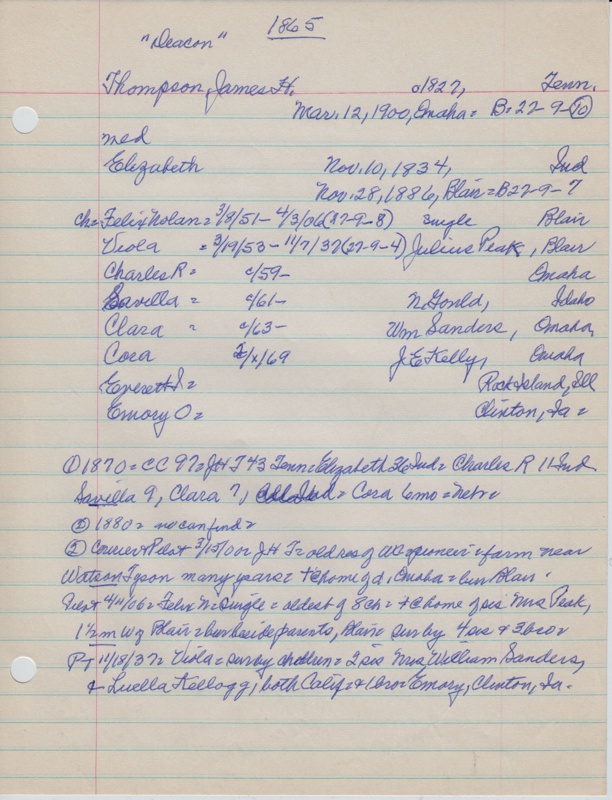 1865
"Deacon"
Thompson, James H. c1827, Tenn.
Mar. 12, 1900, Omaha = B=22-9-10
med
Elizabeth Nov. 10, 1834, Ind
Nov. 28, 1886, Blair = B22-9-7
ch = Felix Nolan = 3/8/51 - 4/3/06 (27-9-8) single Blair
Viola = 3/19/53 - 11/7/37 (27-9-4) Julius Peak, Blair
Charles R = c/59 - Omaha
Savilla = c/61 - N. Gould, Idaho
Clara = c/63 - Wm Sanders, Omaha,
Cora /x/69 J. E. Kelly, Omaha
Everett S = Rock Island, Ill
Emory O = Clinton, Ia =
① 1870 = CC 97 = JH T 43 Tenn = Elizabeth 36 Ind = Charles R 11 Ind
Savilla 9, Clara 7, = Cora 6mo = Nebr =
② 1880 = no can find =
② Courier + Pilot 3/15/00 = JH T = old res of WC = pioneer = farm near
Watson Tyson many years = + @ home of d, Omaha = bur Blair.
Pilot 4/11/06 = Felix N = Single = oldest of 8 ch = + @ home of sis Mrs Peak,
1½ m W of Blair = bur beside parents, Blair = sur by 4 sis & 3 bro =
PT 11/18/37 = Viola = sur by children = 2 sis Mrs William Sanders,
& Luella Kellogg, both Calif = & 1 bro = Emory, Clinton, Ia.